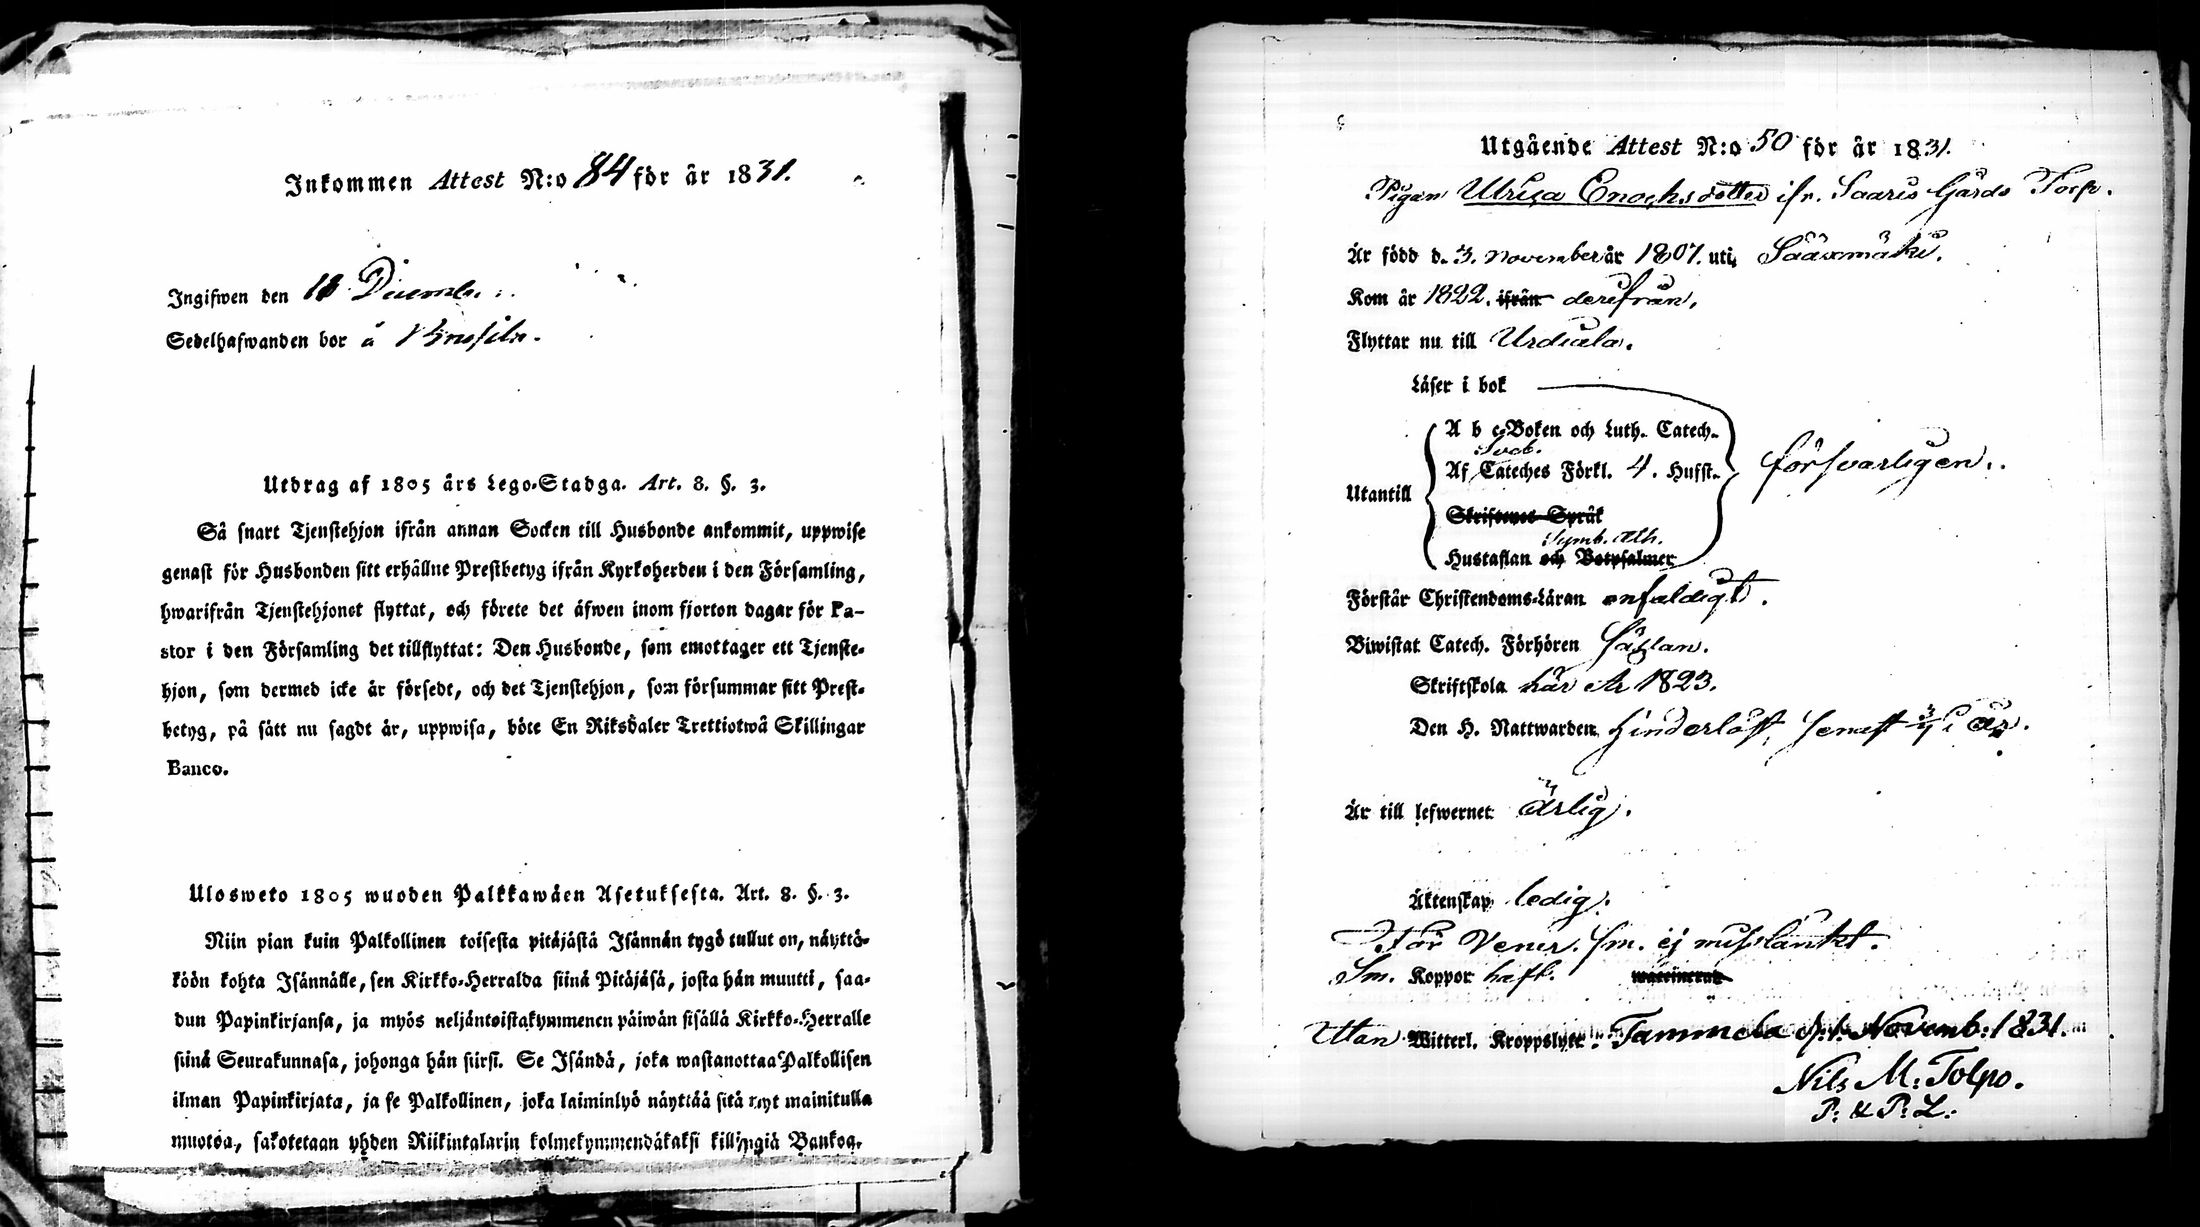 Inkommen Attest N:o 84 för år 1831.
Ingifwen den 18 Decembr.
Sedelhafwanden bor å
Utdrag af 1805 års Lego-Stadga. Art. 8. §. 3.
Så snart Tjenstehjon ifrån annan Socken till Husbonde ankommit, uppwise
genast för Husbonden sitt erhållne Prestbetyg ifrån Kyrkoherden i den Församling,
hwarifrån Tjenstehjonet flyttat, och förete det äfwen inom fjorton dagar för Pa-
stor i den Församling det tillflyttat: Den Husbonde, som emottager ett Tjenste-
hjon, som dermed icke är försedt, och det Tjenstehjon, som försummar sitt Prest-
betyg, på sätt nu sagdt är, uppwisa, böte En Riksdaler Trettiotwå Skillingar
Banco.
Ulosweto 1805 wuoden Palkkawäen Asetuksesta. Art. 8. §. 3.
Niin pian kuin Palkollinen toisesta pitäjästä Isännän tygö tullut on, näyttä-
köön kohta Isännälle, sen Kirkko-Herralda siinä Pitäjäsä, josta hän muutti, saa-
dun Papinkirjansa, ja myös neljäntoistakymmenen päiwän sisällä Kirkko-Herralle
siinä Seurakunnasa, johonga hän siirsi. Se Isändä, joka wastanottaa Palkollisen
ilman Papinkirjata, ja se Palkollinen, joka laiminlyö näyttää sitä nyt mainitulla
muotoa, sakotetaan yhden Riikintalarin kolmekymmendäkaksi killingiä Bankoa.
Utgående Attest N:o 50 för år 1831.
Pigan Ulrica Enochsdotter ifr. Saaris Gårds Torp.
Är född d. 3. November år 1807. uti Sääxmäki.
Kom år 1822. ifrån derifrån,
Flyttar nu till Urdiala.
Läser i bok
A b c-Boken och Luth. Catech.
Sveb.
Af Cateches Förkl. 4. Hufst. försvarligen.
Utantill
Skriftenes Språk
Symb. Ath.
Hustaflan och Botpsalmer
Förstår Christendoms-Läran enfaldigt.
Biwistat Catech. Förhören sällan.
Skriftskola här År 1823.
Den H. Nattwarden hinderlöst, senast i år.
Är till lefwernet ärlig.
Äktenskap ledig.
För Vener. sm. ej misstänkt.
Sm. Koppor haft. waccinerad
Utan Witterl. Kroppslyte. Tammela d. 1. Novemb: 1831.
Nils M: Tolpo.
P: & P: L: